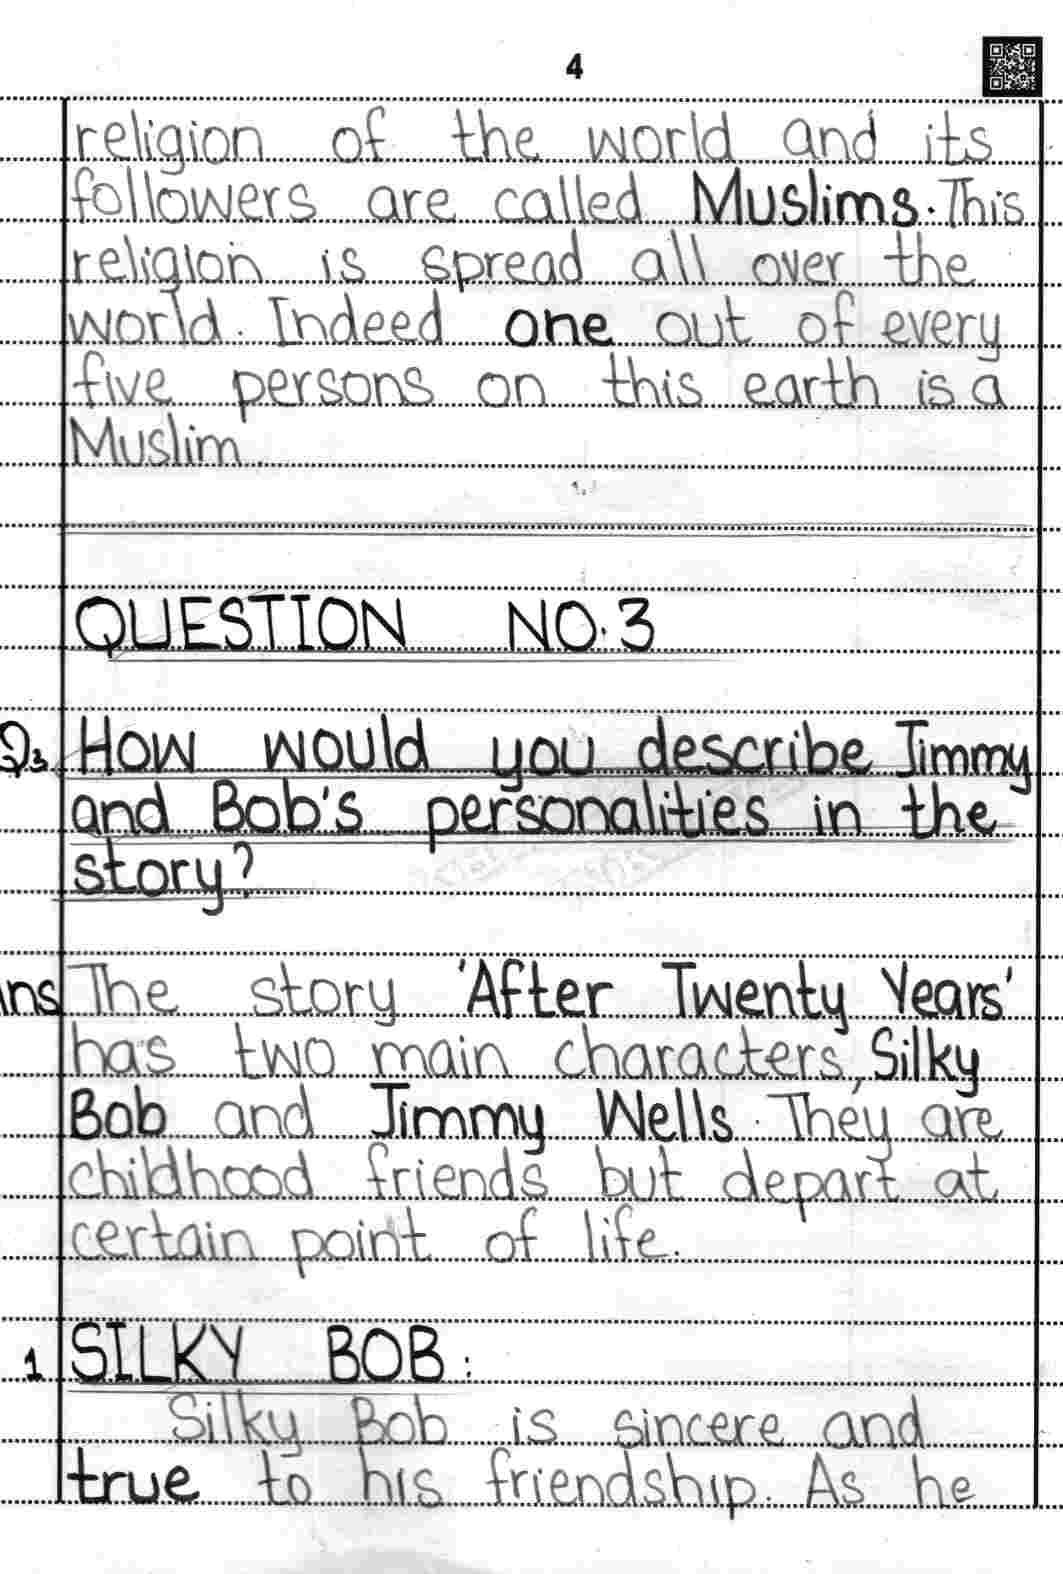 4
religion of the world and its
followers are called Muslims. This
religion is spread all over the
world. Indeed one out of every
five persons on this earth is a
Muslim.
QUESTION NO.3
Q.3 How would you describe Jimmy
and Bob's personalities in the
story?
Ans The story 'After Twenty Years'
has two main characters, Silky
Bob and Jimmy Wells. They are
childhood friends but depart at
certain point of life.
1 SILKY BOB:
Silky Bob is sincere and
true to his friendship. As he